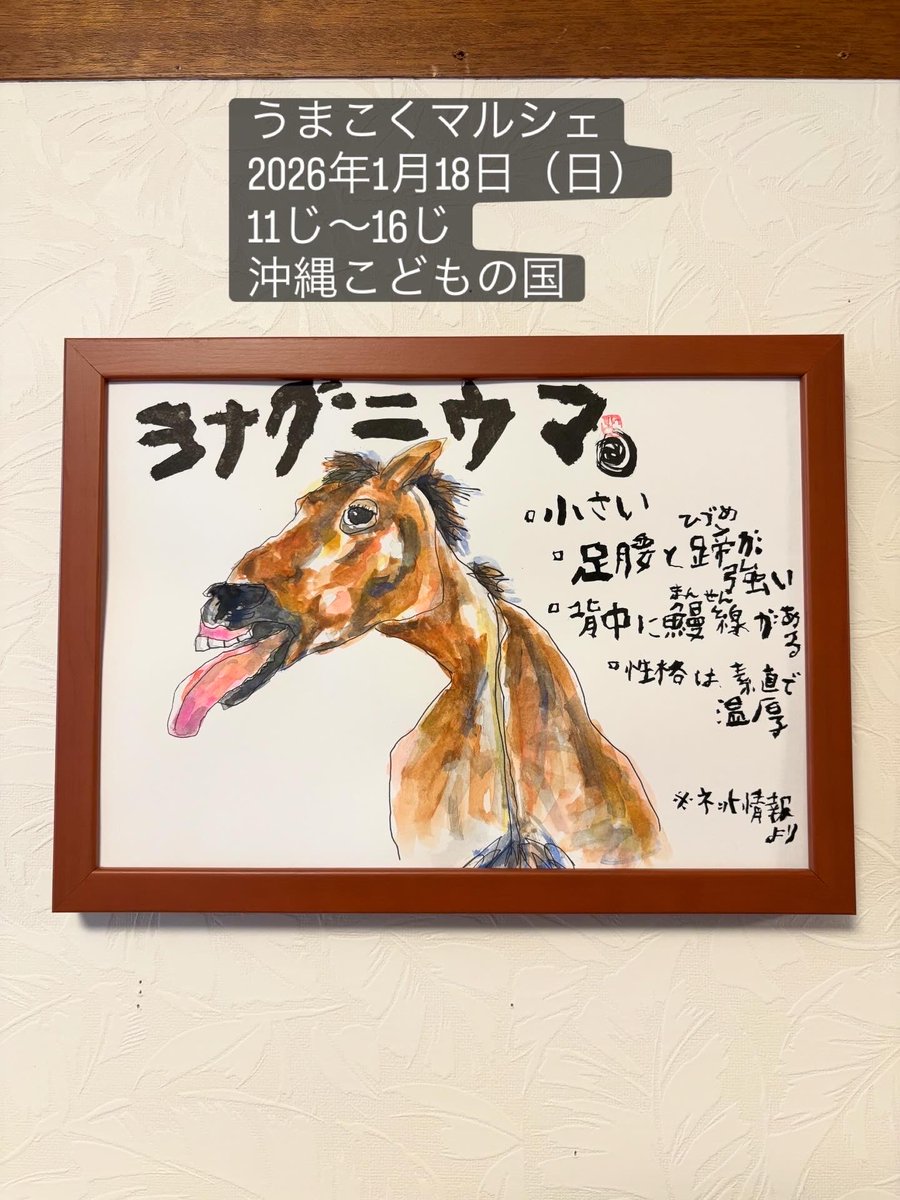 うまこくマルシェ
2026年1月18日（日）
11じ～16じ
沖縄こどもの国
ヨナグニウマ
小さい
ひづめ
足腰と蹄が
強い
まんせん
背中に鰻線がある
性格は素直で
温厚
※ネット情報
より